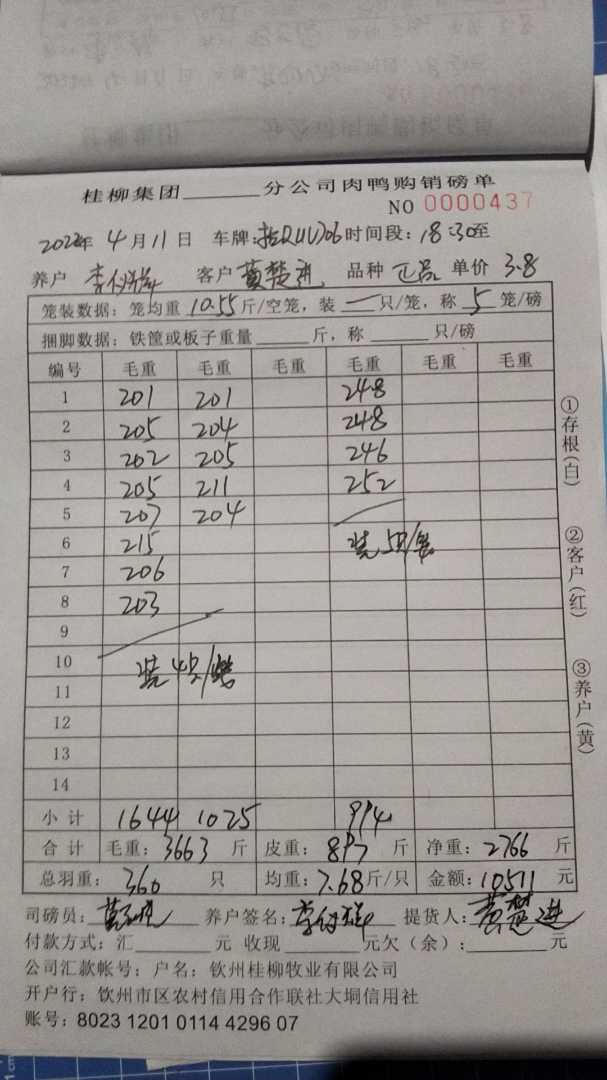 桂柳集团______分公司肉鸭购销磅单
NO 0000437
2022年 4月11日 车牌: 时间段: 18:30至
养户 客户 黄楚进 品种 正品 单价 3.8
笼装数据: 笼均重 10.55 斤/空笼, 装 一 只/笼, 称 5 笼/磅
捆脚数据: 铁筐或板子重量______斤, 称______只/磅
编号 毛重 毛重 毛重 毛重 毛重 毛重
1 201 201 248
2 205 204 248
3 202 205 246
4 205 211 252
5 207 204
6 215 装5只/笼
7 206
8 203
9
10 装4只/笼
11
12
13
14
小计 1644 1025 994
合计 毛重: 3663 斤 皮重: 897 斤 净重: 2766 斤
总羽重: 360 只 均重: 7.68 斤/只 金额: 10511 元
司磅员: 养户签名: 提货人: 黄楚进
付款方式: 汇______元 收现______元欠(余): ______元
公司汇款帐号: 户名: 钦州桂柳牧业有限公司
开户行: 钦州市区农村信用合作联社大垌信用社
账号: 8023 1201 0114 4296 07
①存根(白)
②客户(红)
③养户(黄)